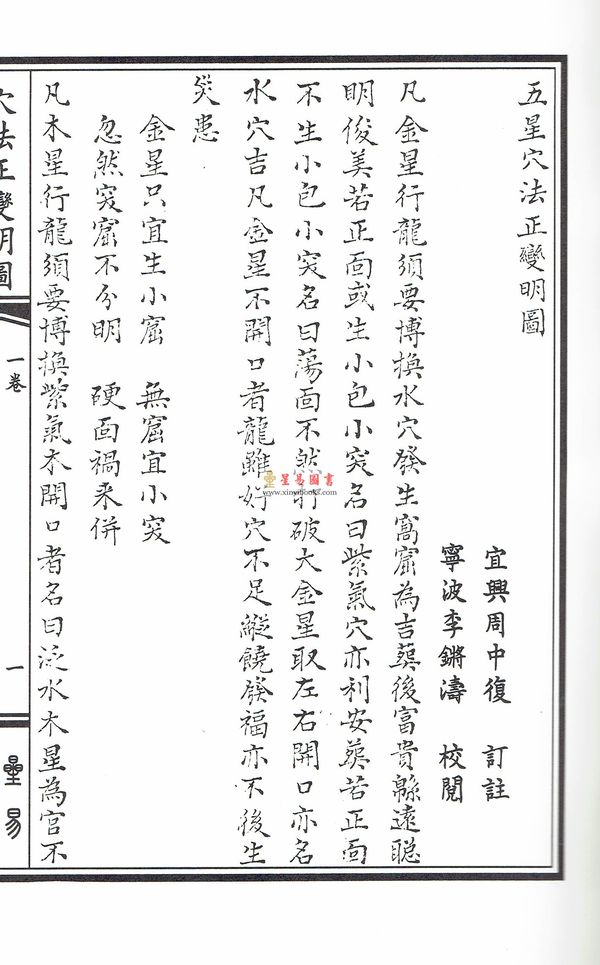 五星穴法正變明圖
宜興周中復 訂註
寧波李鏘濤 校閱
凡金星行龍須要博換水穴發生窩窟為吉葬後富貴緜遠聡
明俊美若正面或生小包小突名曰紫氣穴亦利安葬若正面
不生小包小突名曰蕩面不然打破大金星取左右開口亦名
水穴吉凡金星不開口者龍雖好穴不足縱饒發福亦不後生
災患
金星只宜生小窟 無窟宜小突
忽然突窟不分明 硬面禍来併
凡木星行龍須要博換紫氣木開口者名曰泛水木星為官不
穴法正變明圖
一卷
一
星易
星易圖書
www.xinyibooks.com